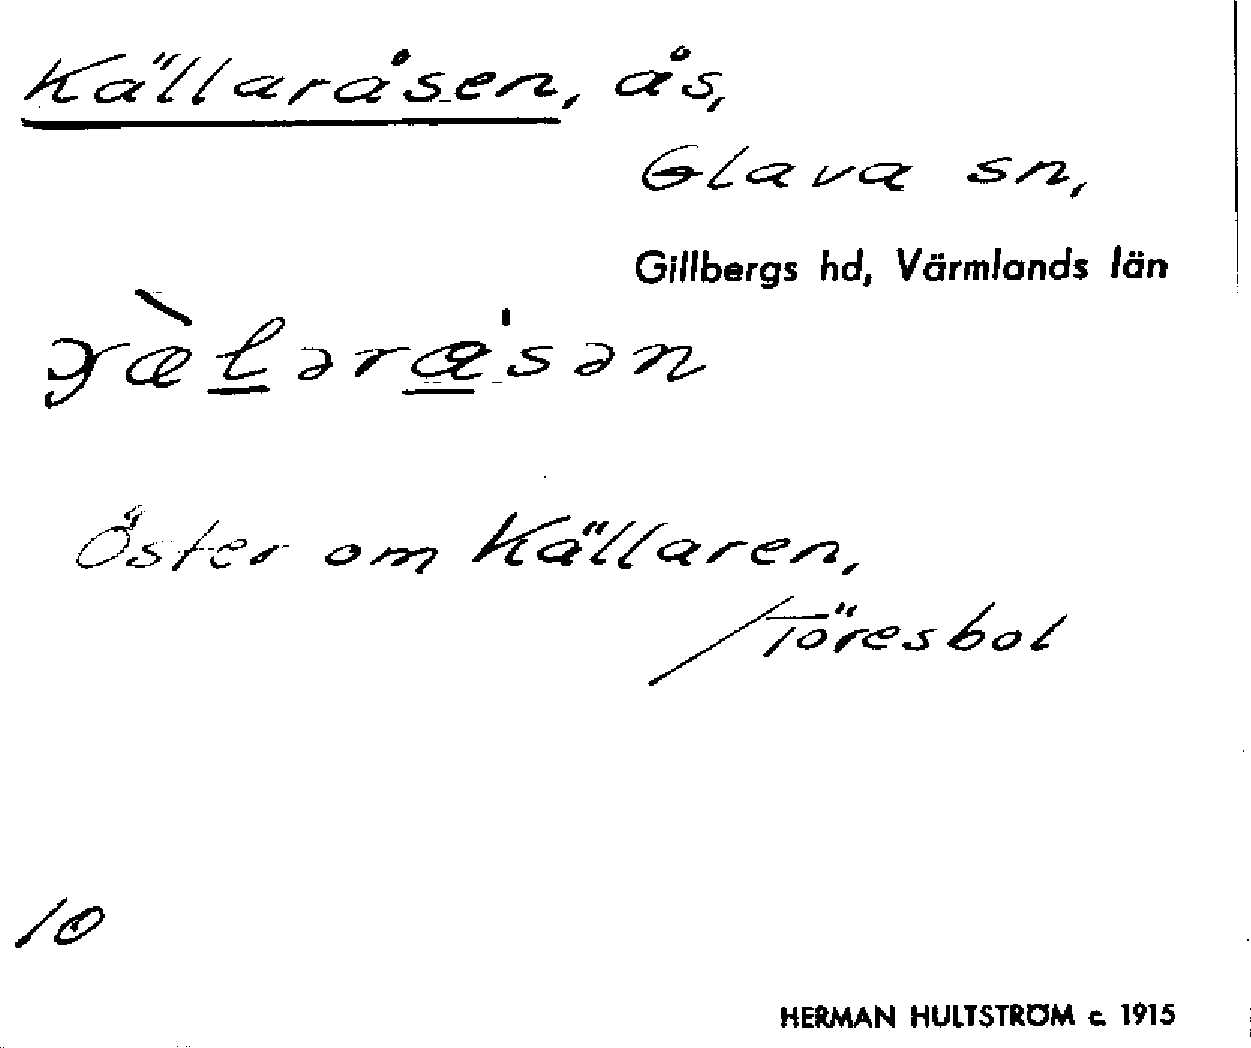 Källaråsen, ås,
Glava sn,
Gillbergs hd, Värmlands län
Öster om Källaren,
Töresbol
10
HERMAN HULTSTRÖM c. 1915